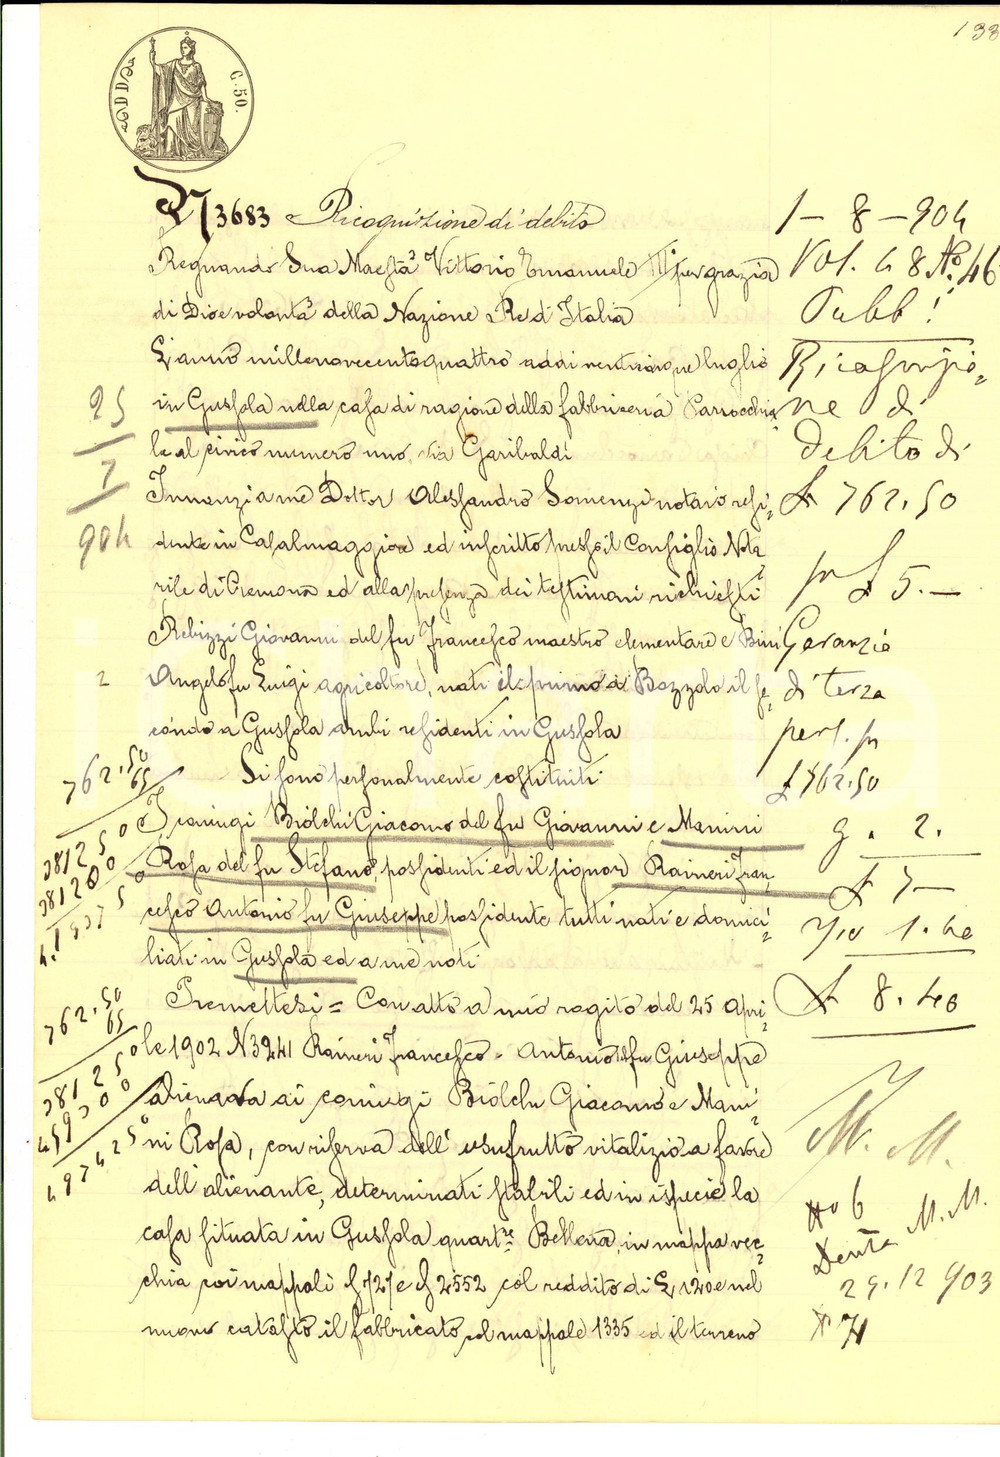 133
DD
C. 50.
N 3683 Ricognizione di debito
Regnando Sua Maestà Vittorio Emanuele III per grazia
di Dio e volontà della Nazione Re d'Italia
L'anno millenovecentoquattro addi venticinque luglio
in Gussola nella casa di ragione della fabbriceria Parrocchia=
le al civico numero uno, via Garibaldi
Innanzi a me Dottor Alessandro Somenzi notaio resi=
dente in Casalmaggiore ed inscritto presso il Consiglio Nota=
rile di Cremona ed alla presenza dei testimoni richiesti
Rebizzi Giovanni del fu Francesco maestro elementare e Bini
Angelo fu Luigi agricoltore, nati il primo a Bozzolo il se=
condo a Gussola ambi residenti in Gussola
Si sono personalmente costituiti
I coniugi Biolchi Giacomo del fu Giovanni e Manini
Rosa del fu Stefano, possidenti ed il signor Raineri Fran=
cesco Antonio fu Giuseppe possidente tutti nati e domici=
liati in Gussola ed a me noti
Premettesi = Con atto a mio rogito del 25 Apri=
le 1902 N 3241 Raineri Francesco - Antonio fu Giuseppe
alienava ai coniugi Biolchi Giacomo e Mani=
ni Rosa, con riserva dell' usufrutto vitalizio a favore
dell' alienante, determinati stabili ed in ispecie la
casa situata in Gussola quart.re Bellena in mappa vec=
chia coi mappali 127 e 2552 col reddito di L 120 e nel
nuovo catasto il fabbricato col mappale 1335 ed il terreno
1 - 8 - 904
Vol. 48 No. 46
Pubb!
Ricognizio=
ne di
debito di
£ 762,50
per £ 5.-
Garanzia
di terza
pers. per
£ 762.50
g. 2.
£ 7-
1.40
£ 8.40
M. M.
No 6
M. M.
29.12 903
25
7
904
2
762,50
65
381250
762,50
65
381250